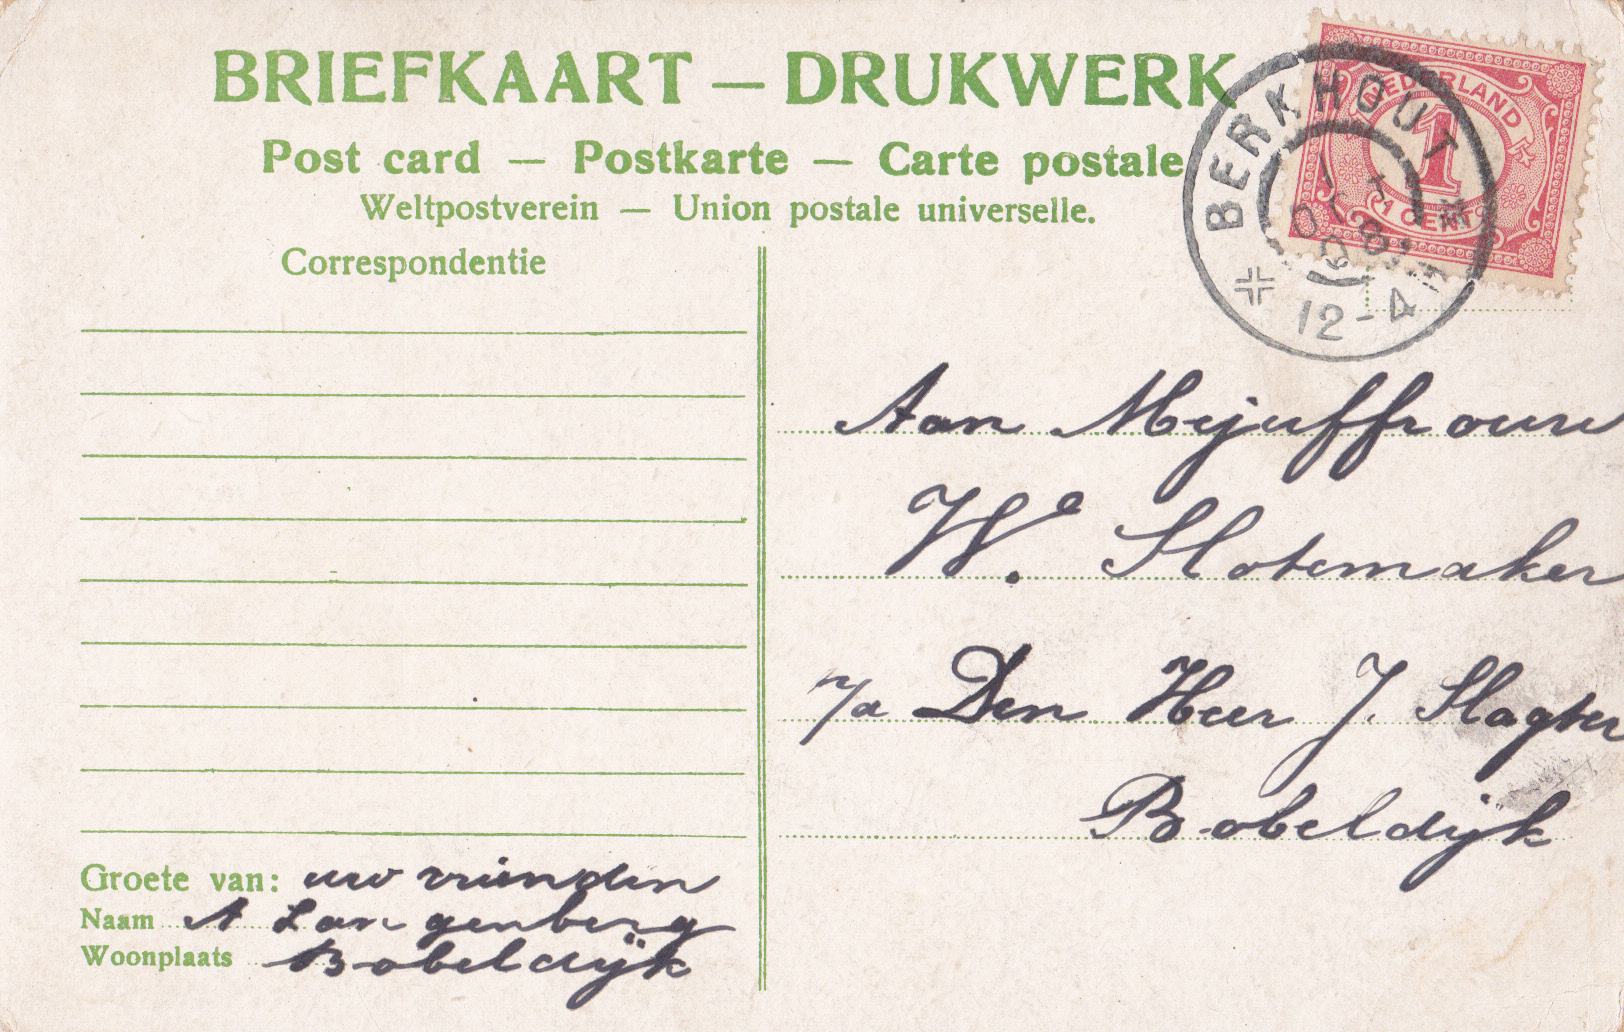 BRIEFKAART — DRUKWERK
Post card — Postkarte — Carte postale
Weltpostverein — Union postale universelle.
Correspondentie
NEDERLAND
1
1 CENT
BERKHOUT
12-4
Aan Mejuffrouw
We. Slotemaker
p/a Den Heer J. Slagter
Bobeldijk
Groete van: uw vrienden
Naam A Langenberg
Woonplaats Bobeldijk